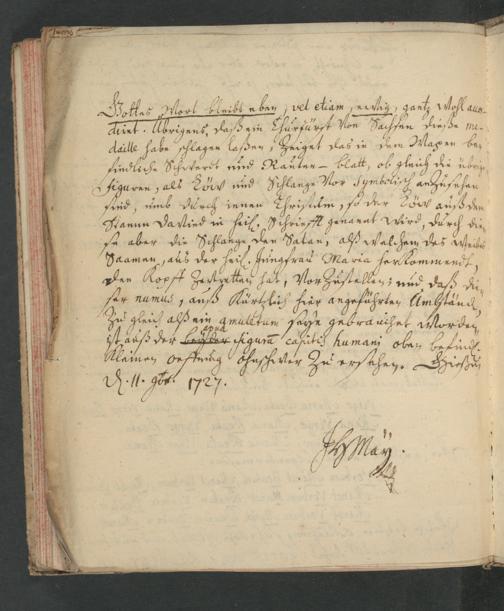 Gottes Wort bleibt eben, vel etiam, ewig, gantz wohl aus-
dürt. Übrigens, daß ein Churfürst Von Sachsen dieße me-
daille habe schlagen laßen, Zeiget das in dem Wapen be-
findliche Schwerdt und Rauten-blatt, ob gleich die übrige
figuren, als Löw und Schlange Vor Symbolisch anzusehen
sind, umb durch jenen Christum, so der Löw auß dem
Stamm David in heil. Schrifft genant wird, durch die-
se aber die Schlange den Satan, alß welchem des Weibes
Saamen, aus der heil. Jungfrau Maria herkommendt,
den Kopff Zertretten hat, Vorzustellen; und daß die-
ser numus, auß Kürtzlich hier angeführten Umständ,
Zu gleich alß ein amuletum seye gebrauchet worden
ist auß der figura capitis humani oben befindl.
kleinen oeffnung ohnschwer Zu ersehen. Gießen
d. 11. 9br. 1727.
JHMaÿ.